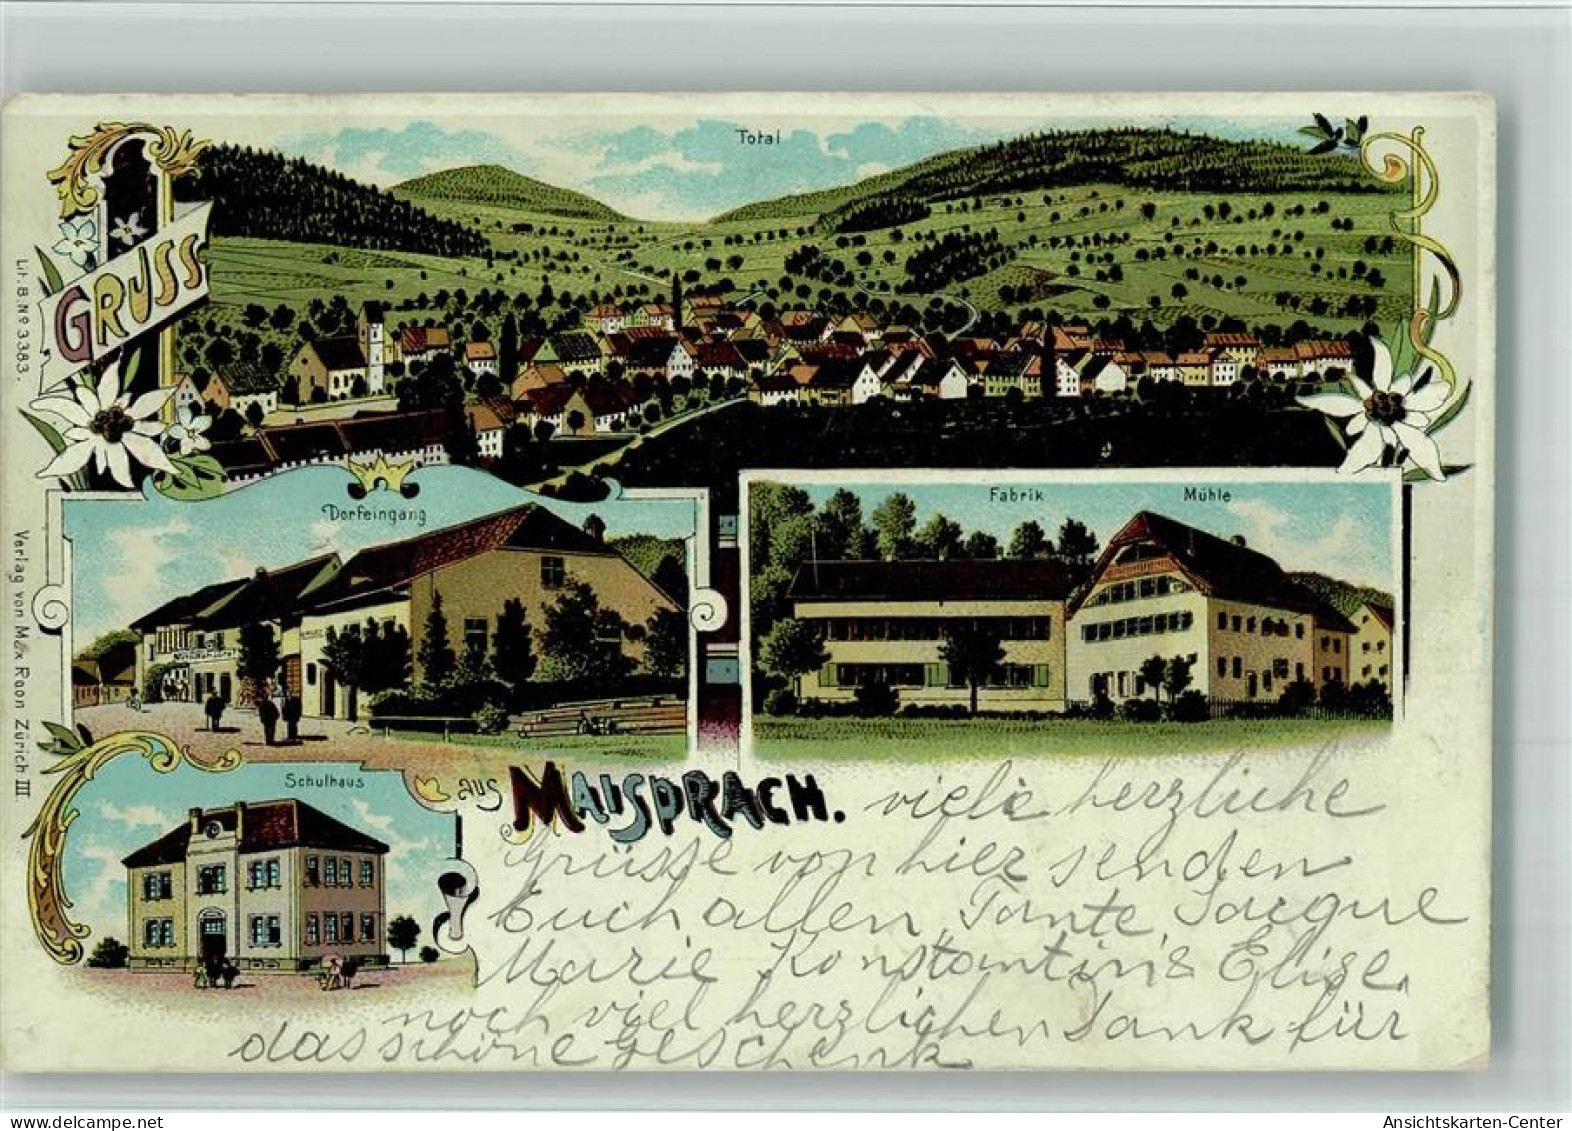 Total
GRUSS
Lit. B. Nº 3383.
Dorfeingang
Fabrik
Mühle
Verlag von Max Roon Zürich III
Schulhaus
aus MAISPRACH.
viele herzliche
Grüsse von hier senden
Euch allen, Tante, Jacque
Marie Konstantin & Elise.
noch viel herzlichen Dank für
das schöne Geschenk
Ansichtskarten-Center